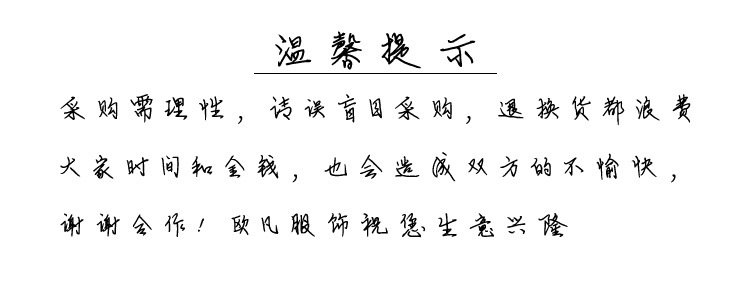 温馨提示
采购需理性，请误盲目采购，退换货都浪费
大家时间和金钱，也会造成双方的不愉快，
谢谢合作！欧凡服饰祝您生意兴隆